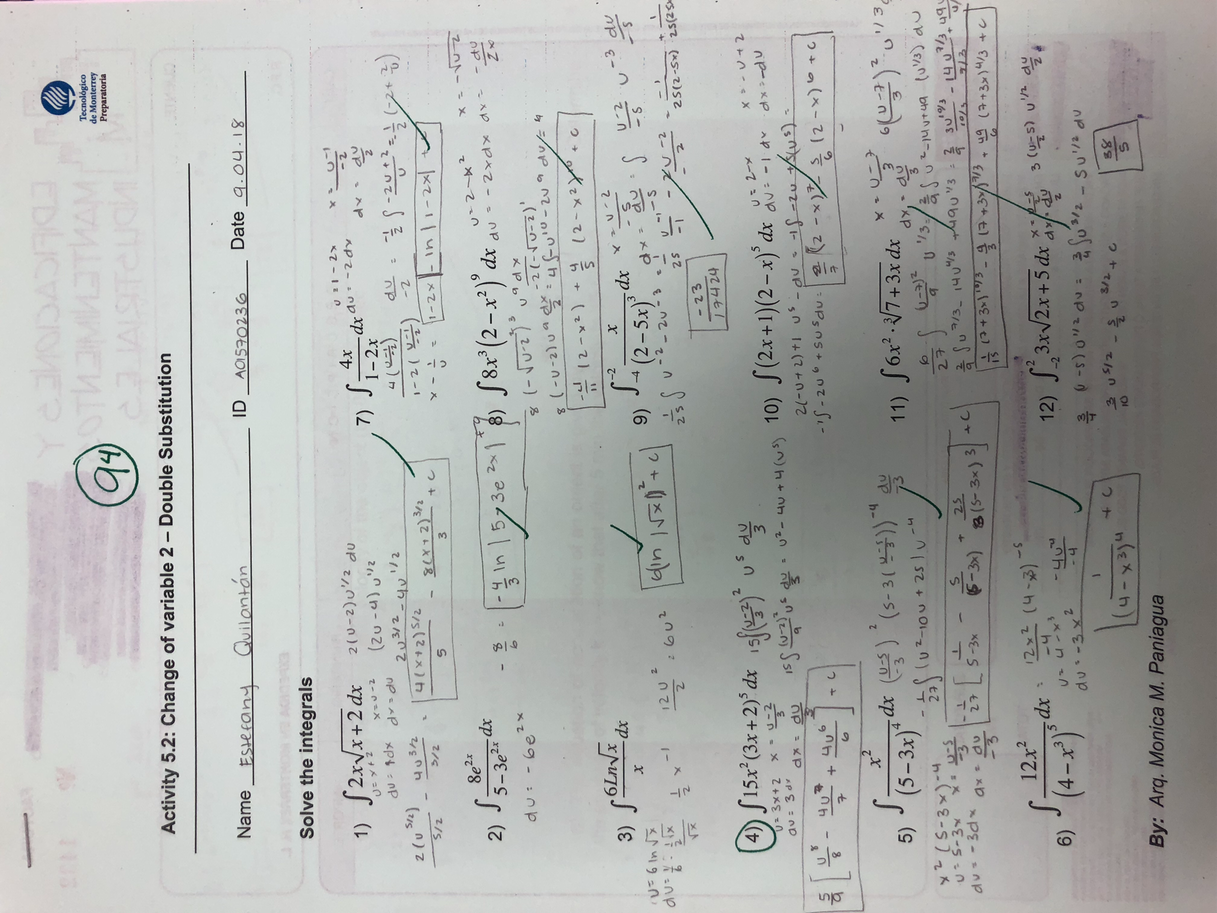 Tecnológico
de Monterrey
Preparatoria
94
Activity 5.2: Change of variable 2 – Double Substitution
Name Estefany Quilantán ID A01570236 Date 9.04.18
Solve the integrals
1) ∫ 2x√(x+2) dx
2(u-2)u^1/2 du
u = x+2
x = u-2
(2u-4) u^1/2
2u^3/2 - 4u^1/2
2(u^5/2)/(5/2) - 4u^3/2/(3/2) = 4(x+2)^5/2 / 5 - 8(x+2)^3/2 / 3 + c
2) ∫ 8e^2x/(5-3e^2x) dx
du = -6e^2x
-8/6 = -4/3 ln|5-3e^2x| + c
3) ∫ 6Ln√x / x dx
u = 6 ln √x
1/2 x^-1
12u²/2 = 6u²
6|ln|√x||² + c
4) ∫ 15x²(3x+2)^5 dx
15∫((u-2)/3)² u^5 du/3
u = 3x+2
x = (u-2)/3
du = 3dx
dx = du/3
15∫ (u-2)²/9 u^5 du/3 = u² - 4u + 4(u^5)
5/9 [u^8/8 - 4u^7/7 + 4u^6/6] + c
5) ∫ x²/(5-3x)^4 dx
((u-5)/-3)² (5-3((u-5)/-3))^-4 du/-3
x²(5-3x)^-4
u = 5-3x
x = (u-5)/-3
du = -3dx
dx = du/-3
-1/27 ∫(u²-10u+25) u^-4
-1/27 [1/(5-3x) - 5/(5-3x) + 25/3(5-3x)³] + c
6) ∫ 12x²/(4-x³)^5 dx = 12x²(4-x³)^-5
u = 4-x³
du = -3x²
-4u^-4/-4
(1/(4-x³)^4) + c
7) ∫ 4x/(1-2x) dx
u = 1-2x
x = (u-1)/-2
du = -2dx
dx = du/-2
1-2x - ln|1-2x| + c
8) ∫ 8x³(2-x²)^9 dx
u = 2-x²
x = -√(u-2)
du = -2xdx
dx = -du/2x
-4/11 (2-x²)^11 + 4/5 (2-x²)^10 + c
9) ∫_-4^-2 x/(2-5x)³ dx
x = (u-2)/-5
dx = du/-5
∫ (u-2)/-5 u^-3 du/-5
1/25 ∫ u^-2 - 2u^-3 = 1/25 u^-1/-1 - 2u^-2/-2
-23/17424
10) ∫ (2x+1)(2-x)^5 dx
u = 2-x
x = -u+2
du = -1dx
dx = -du
2(-u+2)+1 u^5 - du = -1∫-2u+5(u^5) =
-1∫-2u^6+5u^5 du =
2/7 (2-x)^7 - 5/6 (2-x)^6 + c
11) ∫ 6x² · ∛(7+3x) dx
x = (u-7)/3
dx = du/3
6((u-7)/3)² u^1/3
6/27 ∫ (u-7)² u^1/3 = 2/9 ∫ u²-14u+49 (u^1/3) du
2/9 ∫ u^7/3 - 14u^4/3 + 49u^1/3
1/15 (7+3x)^10/3 - 4/3 (7+3x)^7/3 + 49/6 (7+3x)^4/3 + c
12) ∫_-2^2 3x√(2x+5) dx
x = (u-5)/2
dx = du/2
3(u-5)/2 u^1/2 du/2
3/4 (u-5) u^1/2 du = 3/4 ∫u^3/2 - 5u^1/2 du
3/10 u^5/2 - 5/2 u^3/2 + c
38/5
By: Arq. Monica M. Paniagua